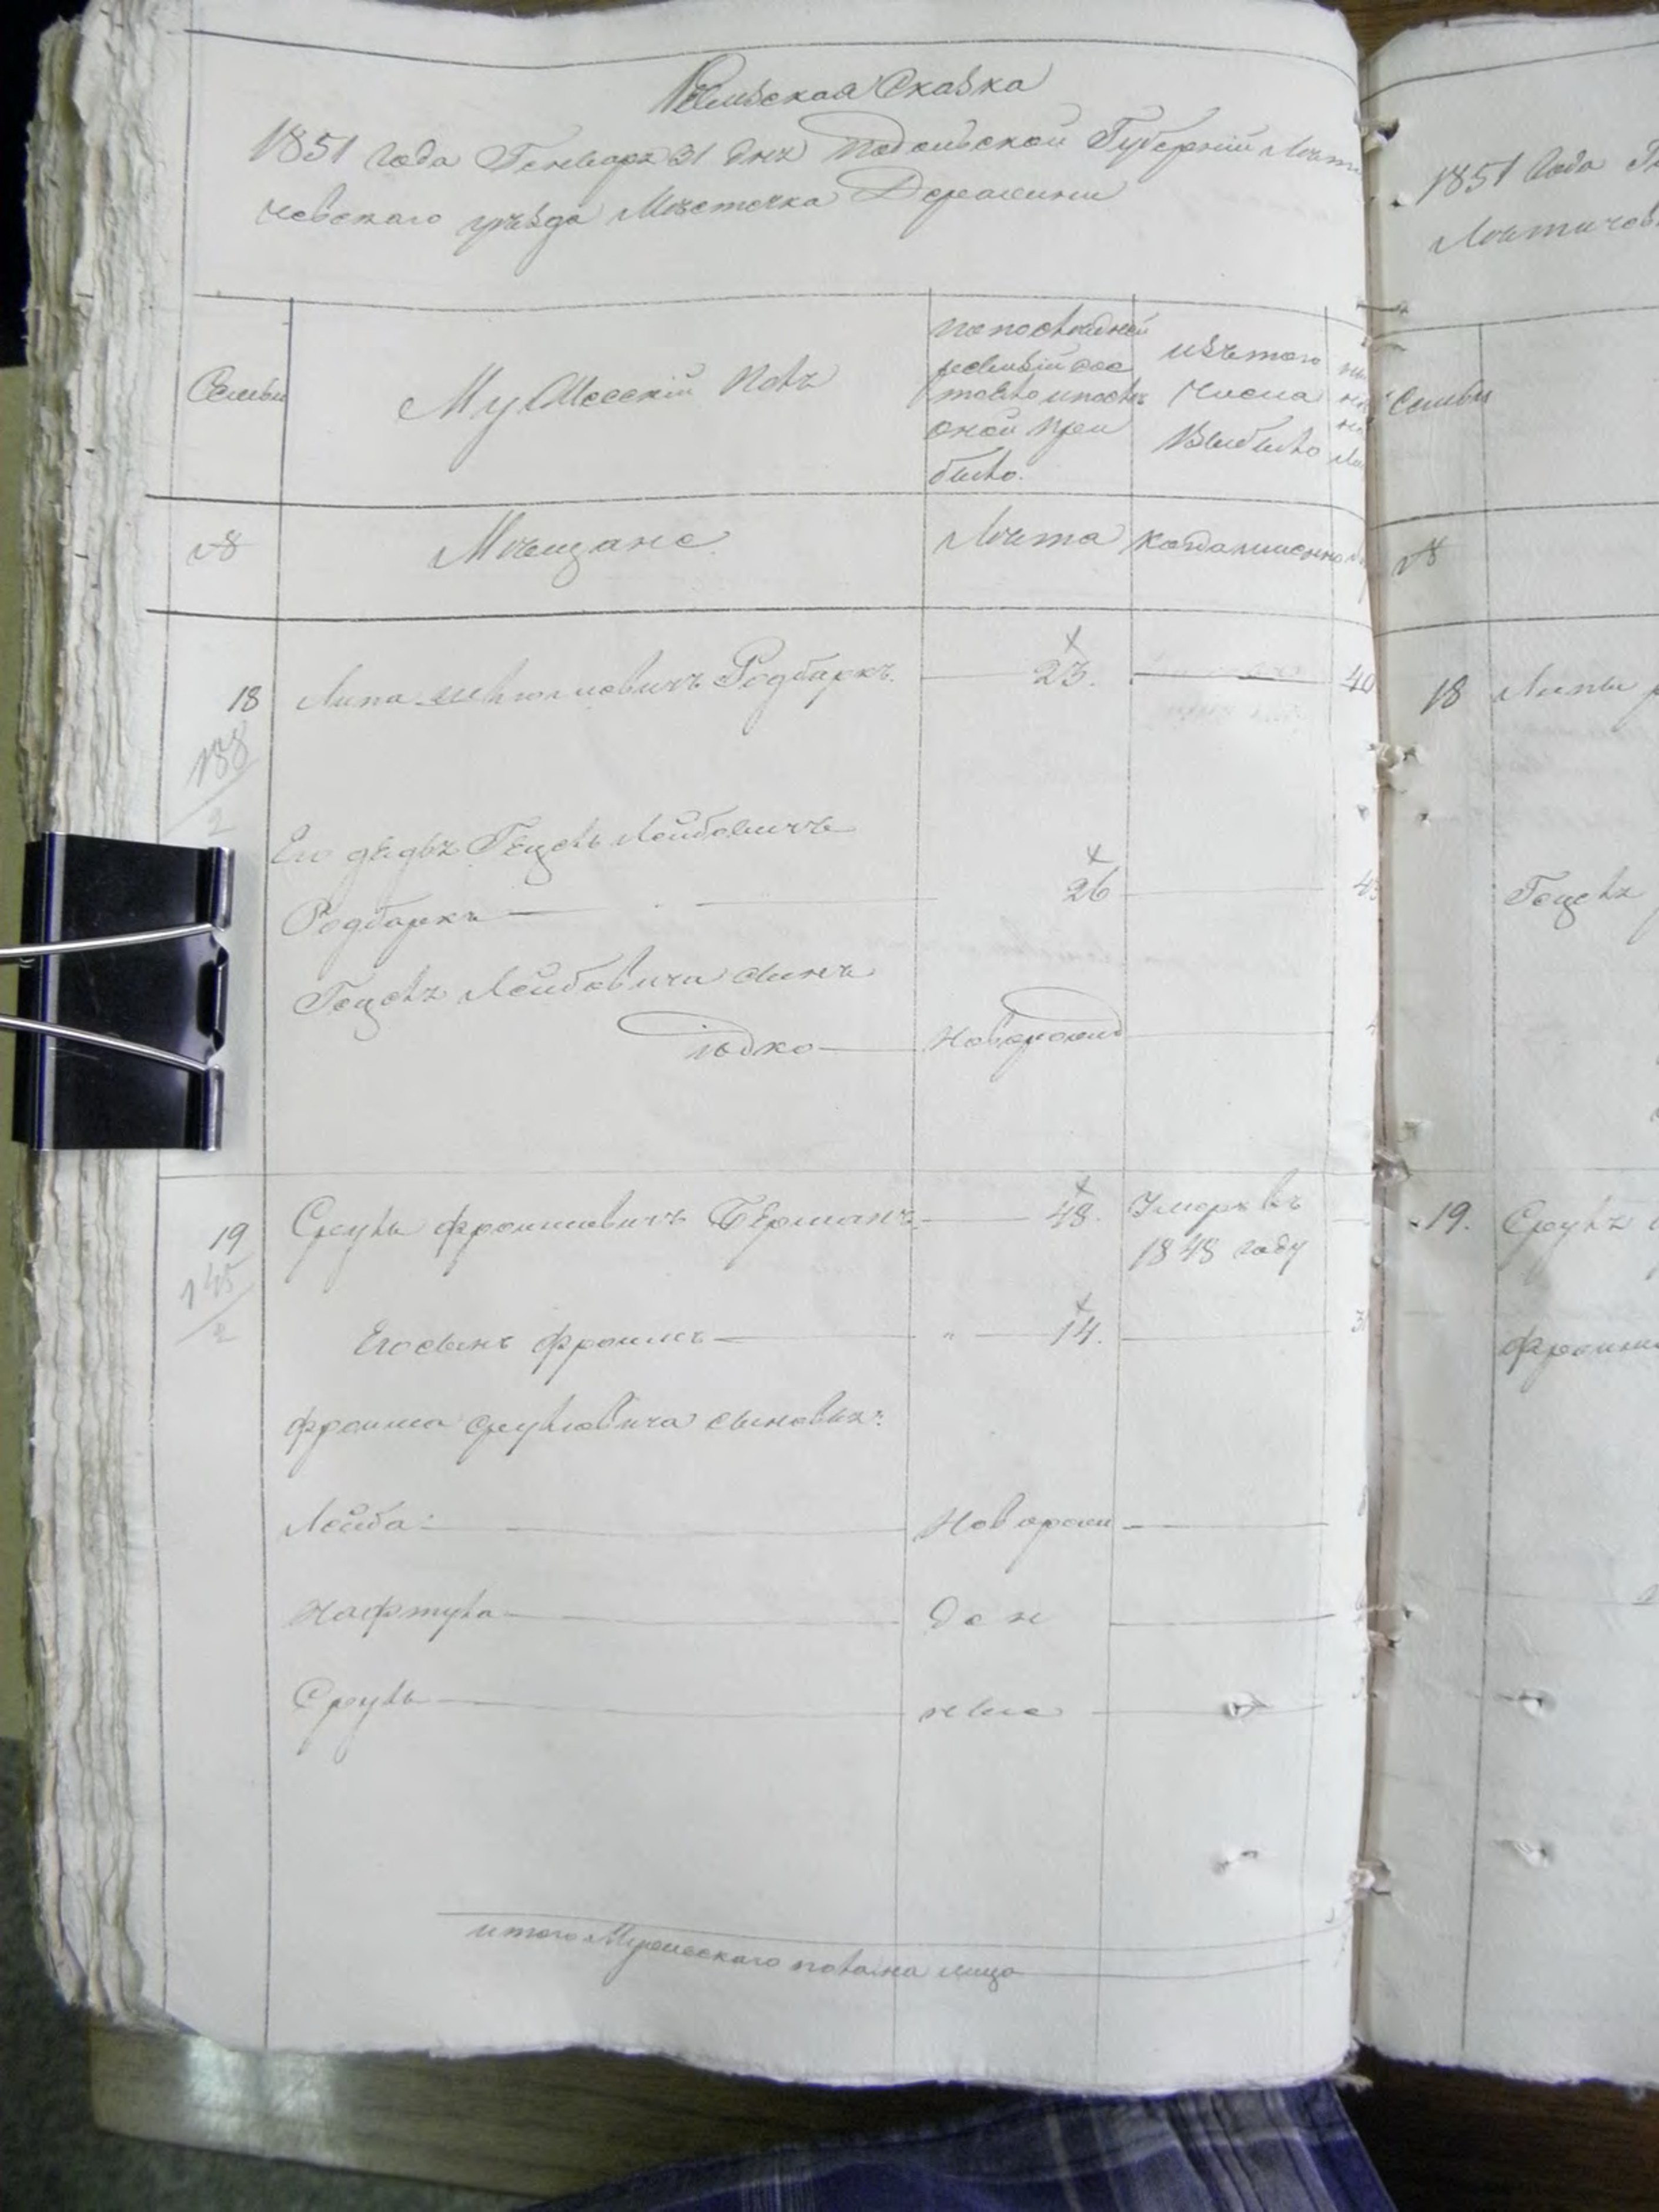 Ревизская Сказка
1851 года Генваря 31 дня Подольской Губернии Лѣти
чевскаго уѣзда Мѣстечка Деражни
Семьи
Мужескій Полъ
По послѣдней
ревизіи сос
тояло и послѣ
оной При
было.
Изъ того
Числа
Выбыло
№
Мѣщане
Лѣта
Когда именно
18
Липа Шліомовичъ Родбаркъ
23.
40
138
2
Его дядя Гецель Лейбовичъ
Родбаркъ
26
Гецеля Лейбовича сынъ
Іодко
Новорожд
19
Сруль Фроимовичъ Берманъ
48.
Умеръ въ
1848 году
145
2
Его сынъ Фроимъ
"
14.
Фроима Срулевича сыновья:
Лейба
Новорож
Нафтула
ден
Сруль
ные
итого Мужескаго пола на лицо
1851 Года
Лѣтичев
Семьи
№
18
Липы
Гецеля
19.
Сруля
Фроима